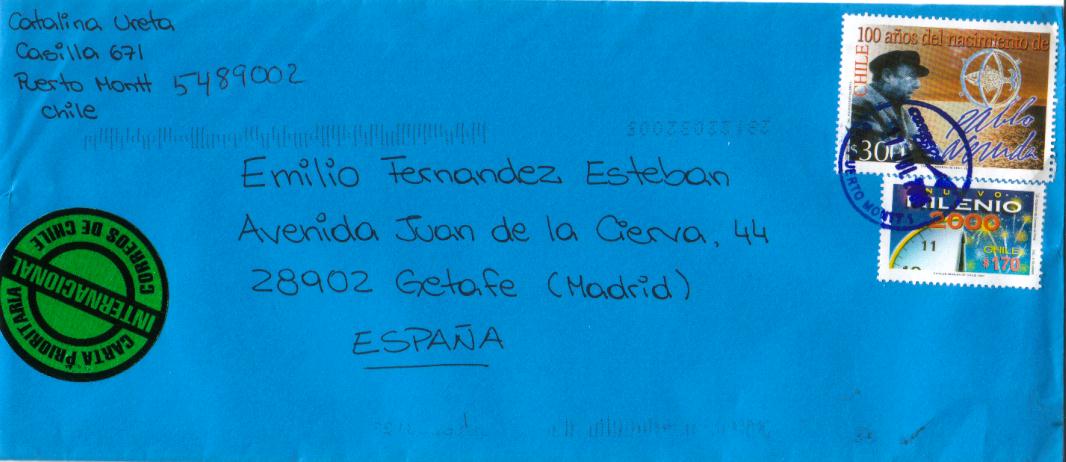 Catalina Ureta
Casilla 671
Puerto Montt 5489002
Chile
Emilio Fernandez Esteban
Avenida Juan de la Cierva, 44
28902 Getafe (Madrid)
ESPAÑA
100 años del nacimiento de
Pablo
Neruda
CHILE
$300
NUEVO
MILENIO
2000
11
CHILE
$170
PUERTO MONTT
CORREOS DE CHILE
INTERNACIONAL
CARTA PRIORITARIA